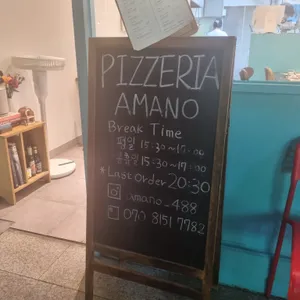 PIZZERIA
AMANO
Break Time
평일 15:30~17:00
공휴일 15:30~17:00
*Last Order 20:30
amano_488
070 8151 7782